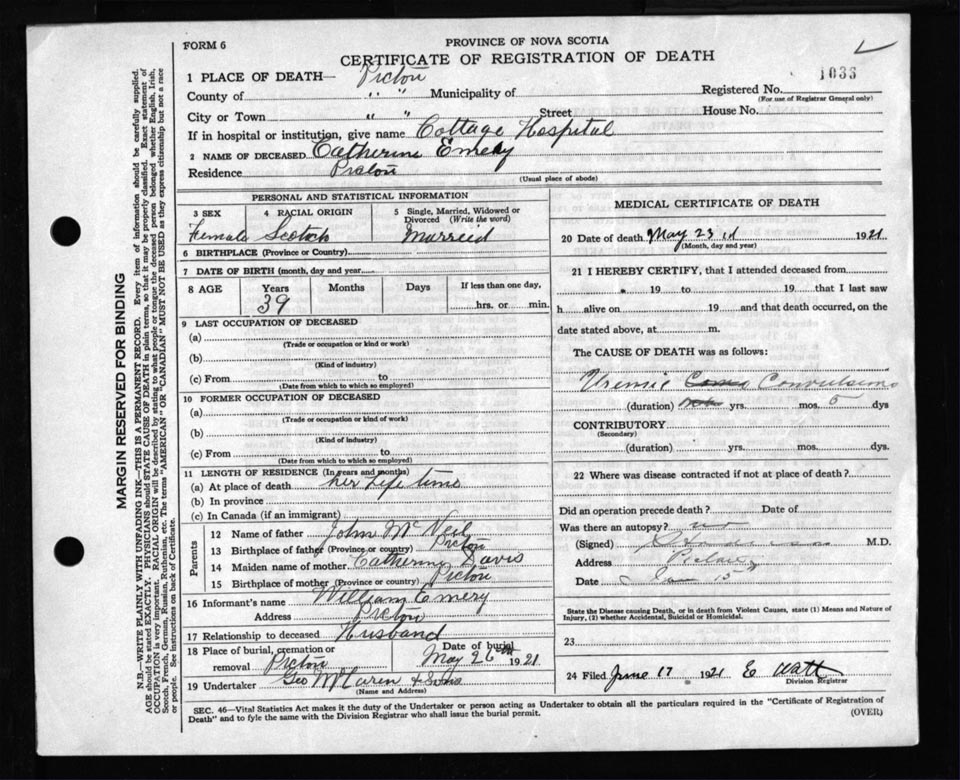 FORM 6
PROVINCE OF NOVA SCOTIA
CERTIFICATE OF REGISTRATION OF DEATH
1036
1 PLACE OF DEATH— Pictou
County of " " Municipality of Registered No.
(For use of Registrar General only)
City or Town " " Street House No.
If in hospital or institution, give name Cottage Hospital
2 NAME OF DECEASED Catherine Emery
Residence Pictou
(Usual place of abode)
PERSONAL AND STATISTICAL INFORMATION
3 SEX 4 RACIAL ORIGIN 5 Single, Married, Widowed or Divorced (Write the word)
Female Scotch Marreid
6 BIRTHPLACE (Province or Country)
7 DATE OF BIRTH (month, day and year)
8 AGE Years Months Days If less than one day,
39 hrs. or min.
9 LAST OCCUPATION OF DECEASED
(a)
(Trade or occupation or kind or work)
(b)
(Kind of industry)
(c) From to
(Date from which to which so employed)
10 FORMER OCCUPATION OF DECEASED
(a)
(Trade or occupation or kind of work)
(b)
(Kind of industry)
(c) From to
(Date from which to which so employed)
11 LENGTH OF RESIDENCE (In years and months)
(a) At place of death her Life time
(b) In province
(c) In Canada (if an immigrant)
Parents
12 Name of father John McNeil
13 Birthplace of father (Province or country) Pictou
14 Maiden name of mother Catherine Davis
15 Birthplace of mother (Province or country) Pictou
16 Informant's name William Emery
Address Pictou
17 Relationship to deceased Husband
18 Place of burial, cremation or removal Pictou
Date of burial May 26th 1921
19 Undertaker Geo McLaren & Sons
(Name and Address)
MEDICAL CERTIFICATE OF DEATH
20 Date of death May 23rd 1921
(Month, day and year)
21 I HEREBY CERTIFY, that I attended deceased from
19 to 19 that I last saw
h alive on 19 and that death occurred, on the
date stated above, at m.
The CAUSE OF DEATH was as follows:
Uremic Coma Convulsions
(duration) yrs. mos. 5 dys
CONTRIBUTORY
(Secondary)
(duration) yrs. mos. dys.
22 Where was disease contracted if not at place of death?
Did an operation precede death? Date of
Was there an autopsy? no
(Signed) M.D.
Address Pictou
Date 15
State the Disease causing Death, or in death from Violent Causes, state (1) Means and Nature of
Injury, (2) whether Accidental, Suicidal or Homicidal.
23
24 Filed June 17 1921 E Watt
Division Registrar
SEC. 46—Vital Statistics Act makes it the duty of the Undertaker or person acting as Undertaker to obtain all the particulars required in the "Certificate of Registration of
Death" and to fyle the same with the Division Registrar who shall issue the burial permit.
(OVER)
MARGIN RESERVED FOR BINDING
N.B.—WRITE PLAINLY WITH UNFADING INK—THIS IS A PERMANENT RECORD. Every item of information should be carefully supplied.
AGE should be stated EXACTLY. PHYSICIANS should STATE CAUSE OF DEATH in plain terms, so that it may be properly classified. Exact statement of
OCCUPATION is very important. RACIAL ORIGIN will be described by stating to what people or tongue the deceased person belonged whether English, Irish,
Scotch, French, German, Russian, Ruthenian, etc. The terms "AMERICAN" OR "CANADIAN" MUST NOT BE USED as they express citizenship but not a race
or people. See instructions on back of Certificate.